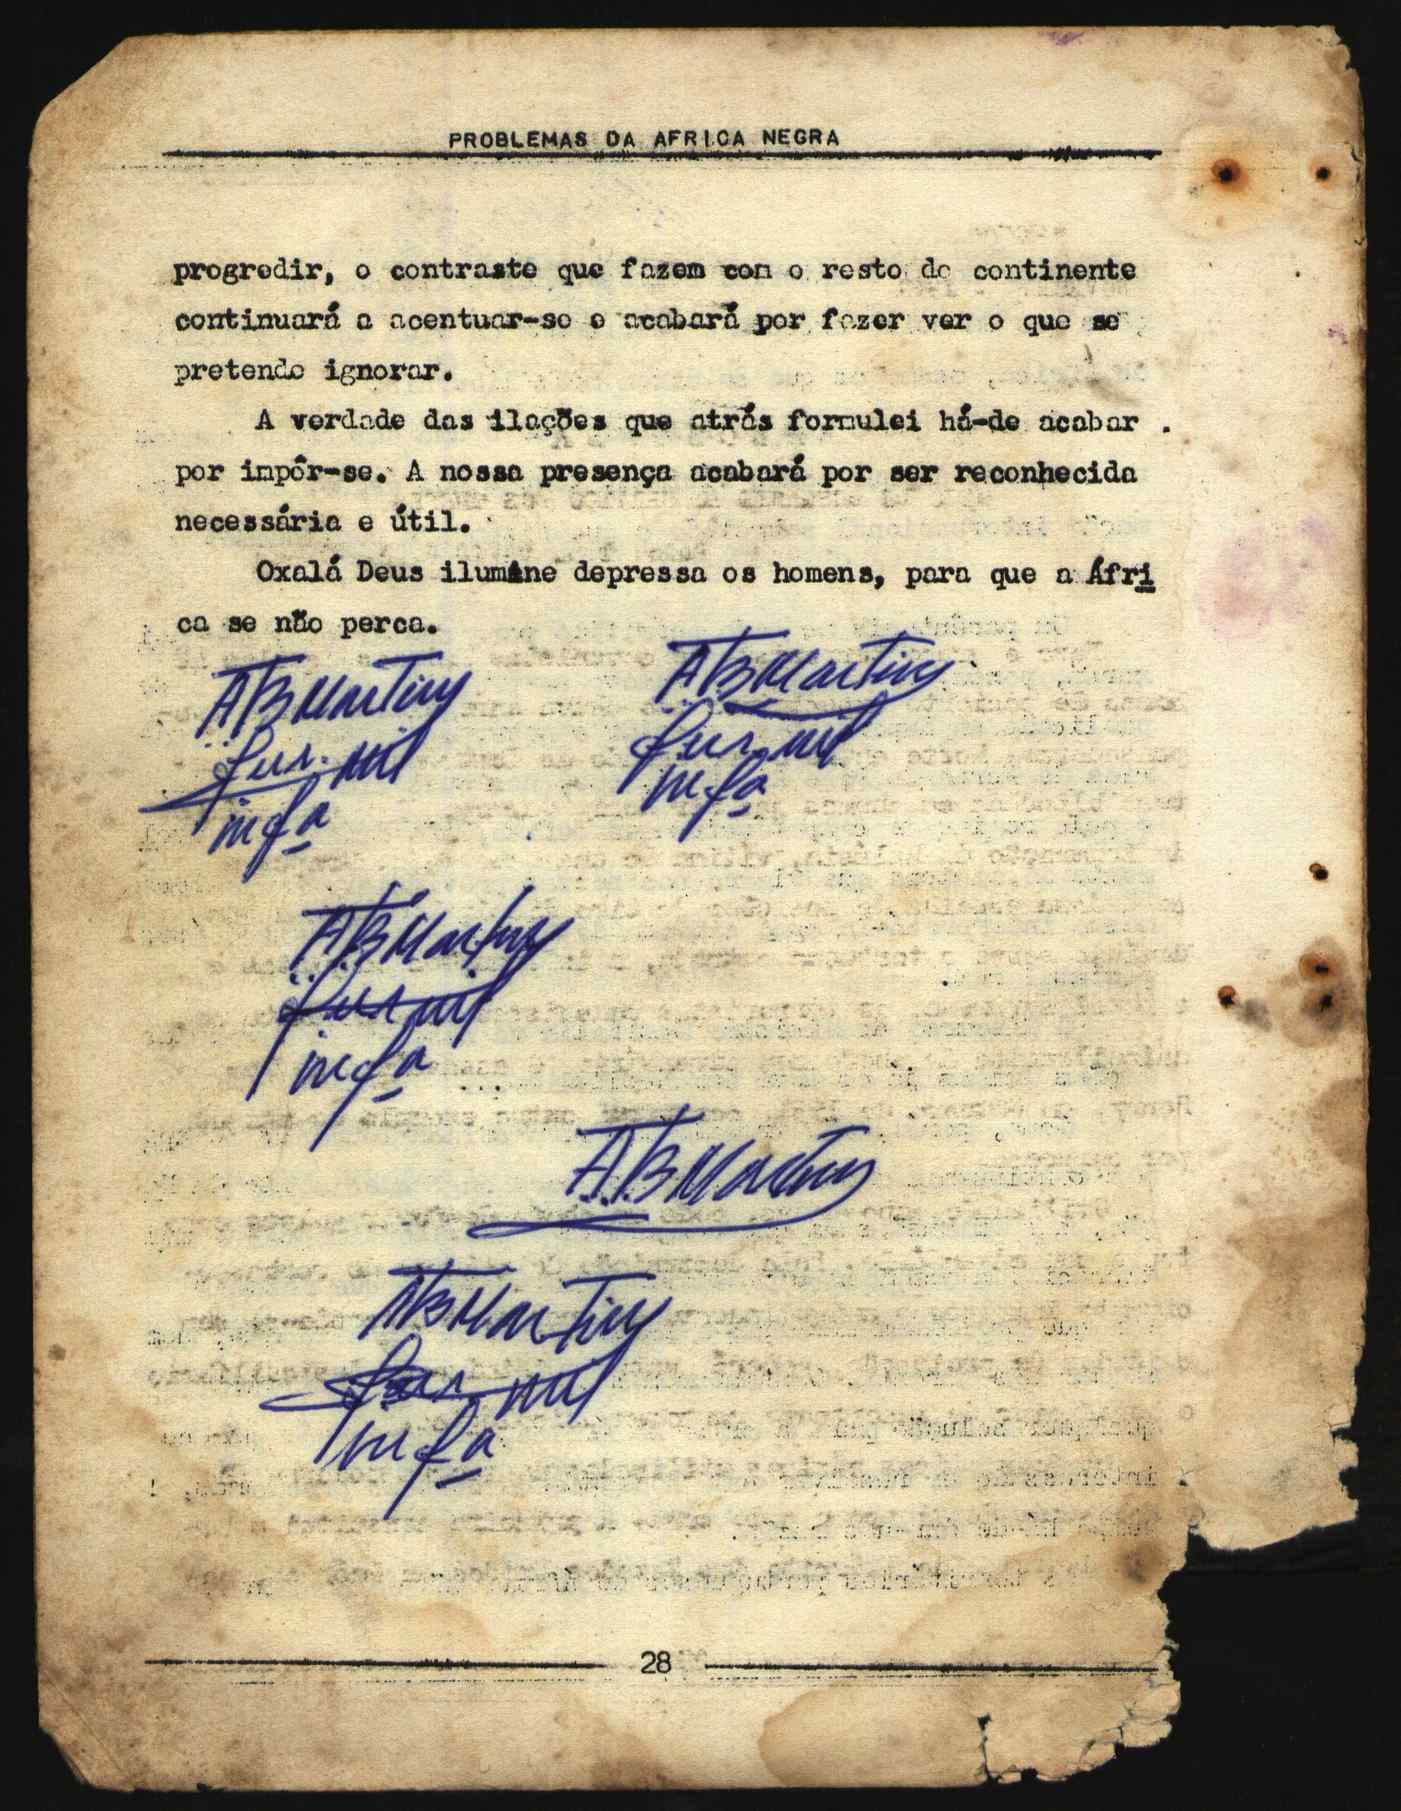 PROBLEMAS DA AFRICA NEGRA
progredir, o contraste que fazem com o resto do continente
continuará a acentuar-se e acabará por fazer ver o que se
pretende ignorar.
A verdade das ilações que atrás formulei há-de acabar .
por impôr-se. A nossa presença acabará por ser reconhecida
necessária e útil.
Oxalá Deus ilumine depressa os homens, para que a Áfri
ca se não perca.
ABMartins
ABMartins
mil
mil
infa
infa
ABMartins
mil
infa
A.B.Martins
ABMartins
mil
infa
28